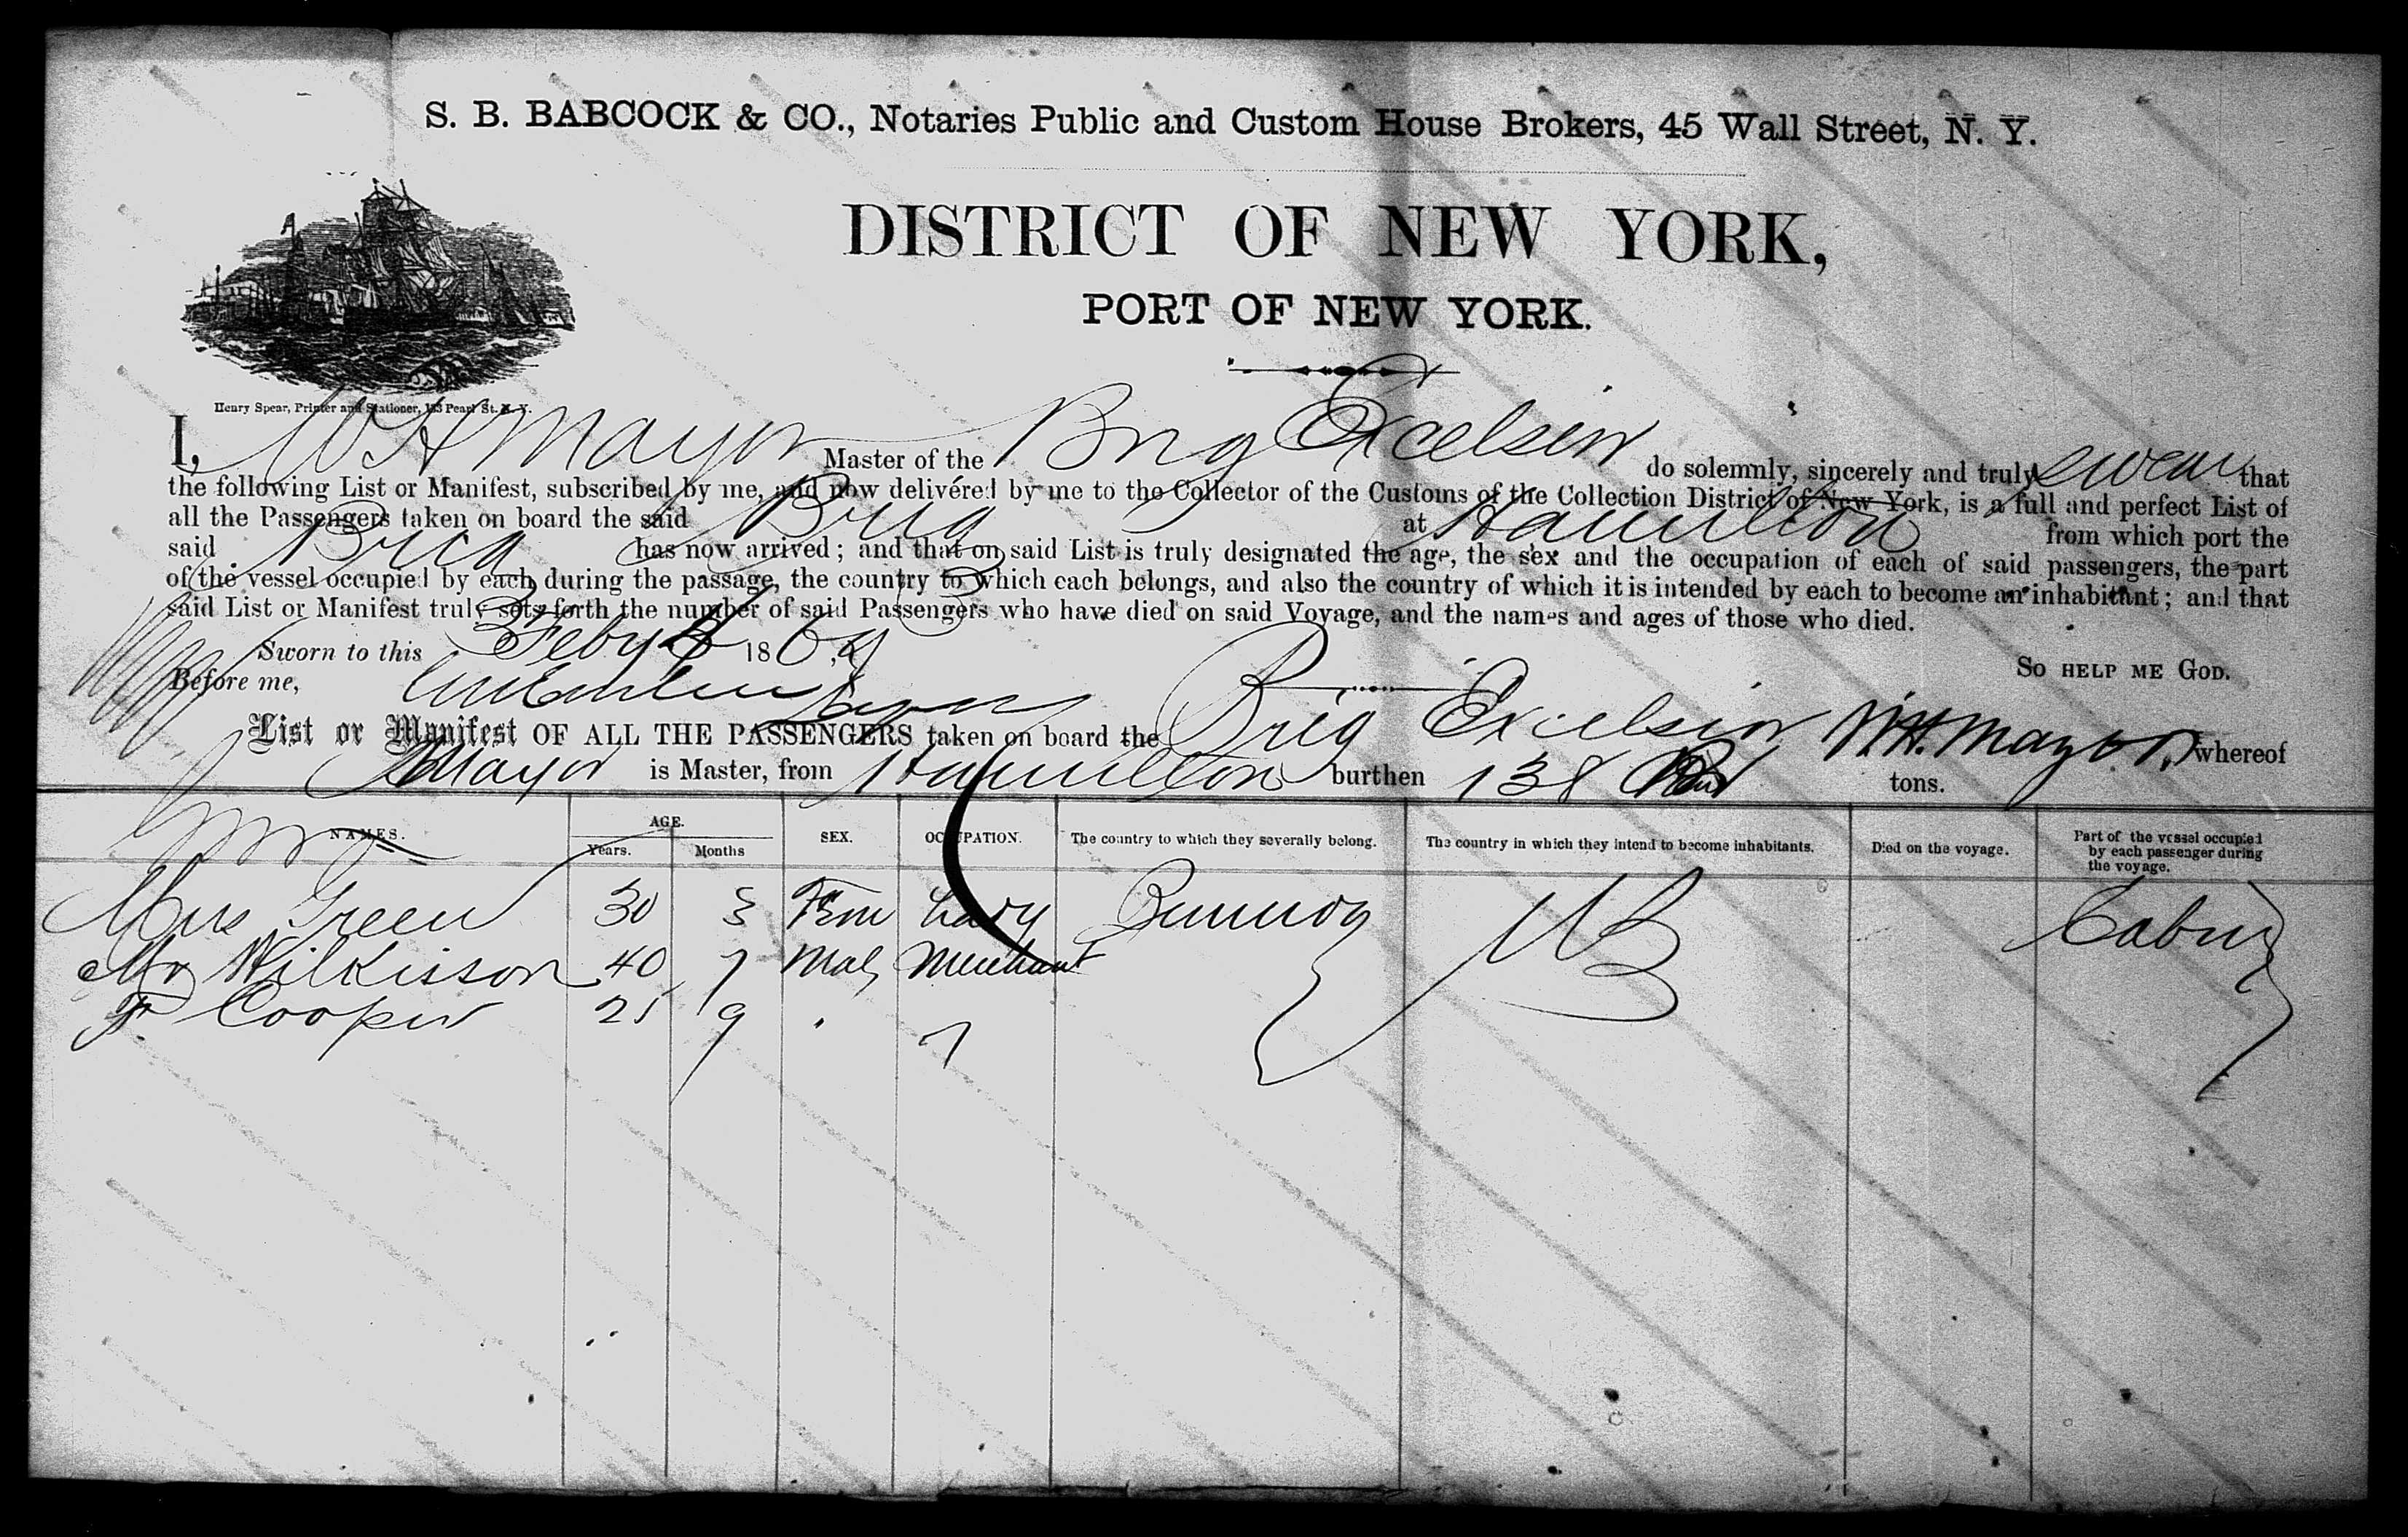 S. B. BABCOCK & CO., Notaries Public and Custom House Brokers, 45 Wall Street, N. Y.
DISTRICT OF NEW YORK,
PORT OF NEW YORK.
Henry Spear, Printer and Stationer, 133 Pearl St. N. Y.
I, W H Mayor Master of the Brig Excelsior do solemnly, sincerely and truly swear that
the following List or Manifest, subscribed by me, and now delivered by me to the Collector of the Customs of the Collection District of New York, is a full and perfect List of
all the Passengers taken on board the said Brig at Hamilton from which port the
said Brig has now arrived; and that on said List is truly designated the age, the sex and the occupation of each of said passengers, the part
of the vessel occupied by each during the passage, the country to which each belongs, and also the country of which it is intended by each to become an inhabitant; and that
said List or Manifest truly sets forth the number of said Passengers who have died on said Voyage, and the names and ages of those who died.
Sworn to this Feby 186
SO HELP ME GOD.
Before me,
List or Manifest OF ALL THE PASSENGERS taken on board the Brig Excelsior W.H. Mayor whereof
Mayor is Master, from Hamilton burthen 138 tons.
NAMES. AGE. SEX. OCCUPATION. The country to which they severally belong. The country in which they intend to become inhabitants. Died on the voyage. Part of the vessel occupied by each passenger during the voyage.
Years. Months
Mrs Green 30 3 Fem Lady Cabin
Mr Wilkisson 40 7 Male Merchant
F Cooper 25 9 "